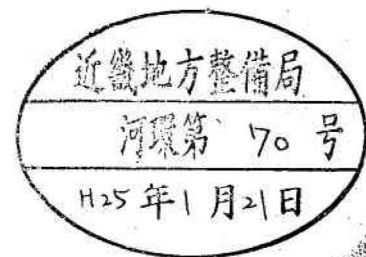 近畿地方整備局
河環第 70 号
H25年1月21日